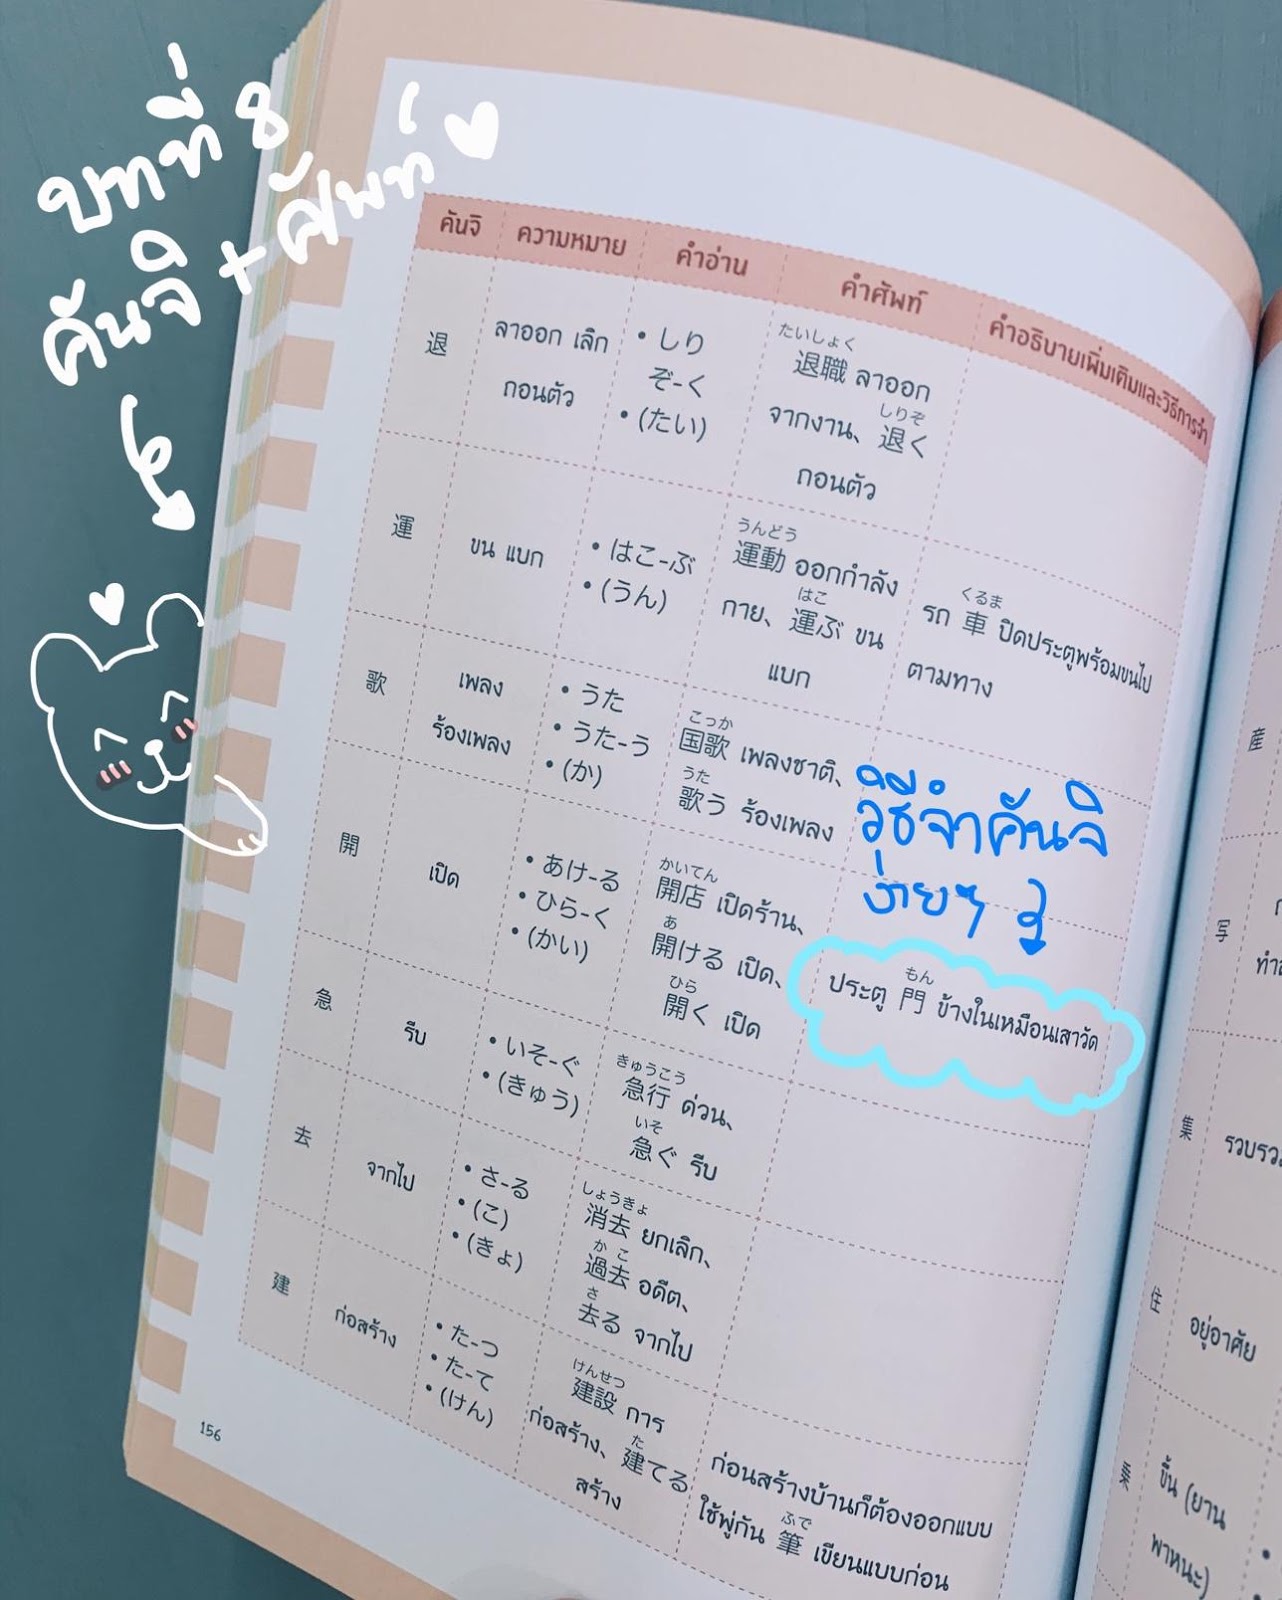 บทที่ 8
คันจิ + ศัพท์
คันจิ
ความหมาย
คำอ่าน
คำศัพท์
คำอธิบายเพิ่มเติมและวิธีการจำ
退
ลาออก เลิก
ถอนตัว
• しり
ぞ-く
• (たい)
たいしょく
退職 ลาออก
しりぞ
จากงาน、退く
ถอนตัว
運
ขน แบก
• はこ-ぶ
• (うん)
うんどう
運動 ออกกำลัง
はこ
กาย、運ぶ ขน
แบก
くるま
รถ 車 ปิดประตูพร้อมขนไป
ตามทาง
歌
เพลง
ร้องเพลง
• うた
• うた-う
• (か)
こっか
国歌 เพลงชาติ、
うた
歌う ร้องเพลง
วิธีจำคันจิ
ง่ายๆ
開
เปิด
• あけ-る
• ひら-く
• (かい)
かいてん
開店 เปิดร้าน、
あ
開ける เปิด、
ひら
開く เปิด
もん
ประตู 門 ข้างในเหมือนเสาวัด
急
รีบ
• いそ-ぐ
• (きゅう)
きゅうこう
急行 ด่วน、
いそ
急ぐ รีบ
去
จากไป
• さ-る
• (こ)
• (きょ)
しょうきょ
消去 ยกเลิก、
かこ
過去 อดีต、
さ
去る จากไป
建
ก่อสร้าง
• た-つ
• た-て
• (けん)
けんせつ
建設 การ
た
ก่อสร้าง、建てる
สร้าง
ก่อนสร้างบ้านก็ต้องออกแบบ
ふで
ใช้พู่กัน 筆 เขียนแบบก่อน
156
産
写
集
รวบรว
住
อยู่อาศัย
乗
ขึ้น (ยาน
พาหนะ)